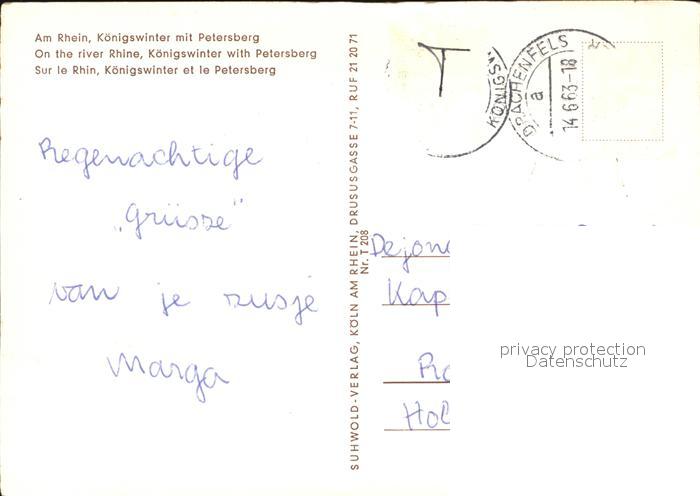 Am Rhein, Königswinter mit Petersberg
On the river Rhine, Königswinter with Petersberg
Sur le Rhin, Königswinter et le Petersberg
Regenachtige
„Grüsse"
van je zusje
Marga
SUHWOLD-VERLAG, KÖLN AM RHEIN, DRUSUSGASSE 7-11, RUF 21 20 71
Nr. T 208
T
KÖNIGSW
DRACHENFELS
a
14.6.63-18
Kap
Hol
privacy protection
Datenschutz